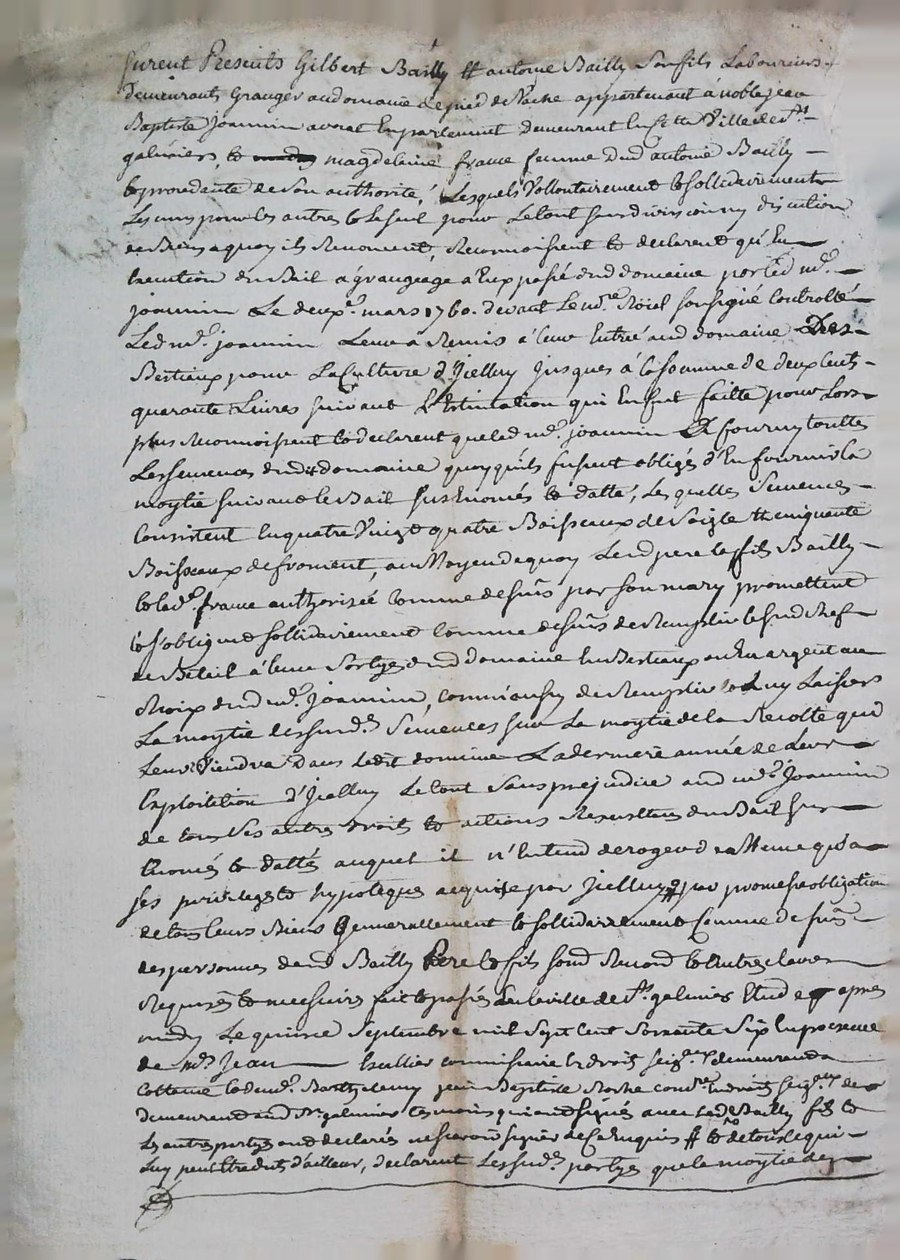 furent Presents Gilbert Bailly et antoine Bailly Son fils Laboureurs
demeurants Granger au domaine de pied de Vache appartenant à noble jean
Baptiste Joannin avocat En parlement demeurant En cette Ville de St
galmier, et magdelaine frame femme dud antoine Bailly
et procedante de Son authorité, Lesquels Vollontairement et sollidairement
Les uns pour les autres et le seul pour Le tout sans division ny discution
de Biens a quoy ils Renoncent, Reconnoissent et declarent qu'En
Execution du Bail a grangeage a Eux passé dud domaine par led mr.
joannin Le deuxe. mars 1760. devant Le nre Roial soussigné Controllé
Led mr. joannin Leur a Remis à leur Entrée aud domaine Des
Bestiaux pour La Culture d'Jcelluy jusques à la somme de deux Cents
quarante Livres suivant L'Estimation qui En fut faitte pour Lors
plus Reconnoissent et declarent que led mr. joannin A fourny touttes
Les semences dudit domaine quoyqu'ils fussent obligés d'En fournir la
moytié suivant le Bail susEnoncé et datté, Les quelles Semences
Consistent En quatre Vingt quatre Boisseaux de Seigle et cinquante
Boisseaux de froment, au Moyen de quoy Lesd pere et fils Bailly
et lad. frame authorizée Comme dessus par son mary promettent
et s'obligent sollidairement Comme dessus de Remplir le susd Chef
de Betail à leur Sortye dud domaine En Bestiaux ou En argent au
choix dud mr. Joannin, comm'aussy de Remplir et Luy Laisser
La moytié des susd. Semences sur La moytié de la Recolte qui
Leur Viendra Dans Ledit domaine La derniere année de Leur
Exploitation d'Jcelluy Le tout Sans prejudice aud mr. Joannin
de tous Ses autres droits et actions Resultants du Bail sus
Enoncé et datté auquel il n'Entend deroger d'atteme qu'a
ses privileges et hypoteques acquise par Jcelluy par promesse obligation
de tous leurs Biens Generallement et sollidairement Comme dessus
des personnes desd Bailly Pere et fils soud Renond et autres clauses
Requises et necessaires fait et passé En la ville de St. galmier Etude apres
midy Le quinze Septembre mil Sept Cent Soixante Six En presence
de Mr. Jean Commissaire En droits seigr. demeurant a
et de mr. Barthelemy jean Baptiste Roche comre. En droits Seigr.
demeurant aud St. galmier temoins qui ont signés avec led Bailly fils et
Les autres partyes ont declarés ne sçavoir signer de Ce Enquis et de tout ce qui
Luy peut Etre dut d'ailleur, declarent Les susd. partyes que la moytié des